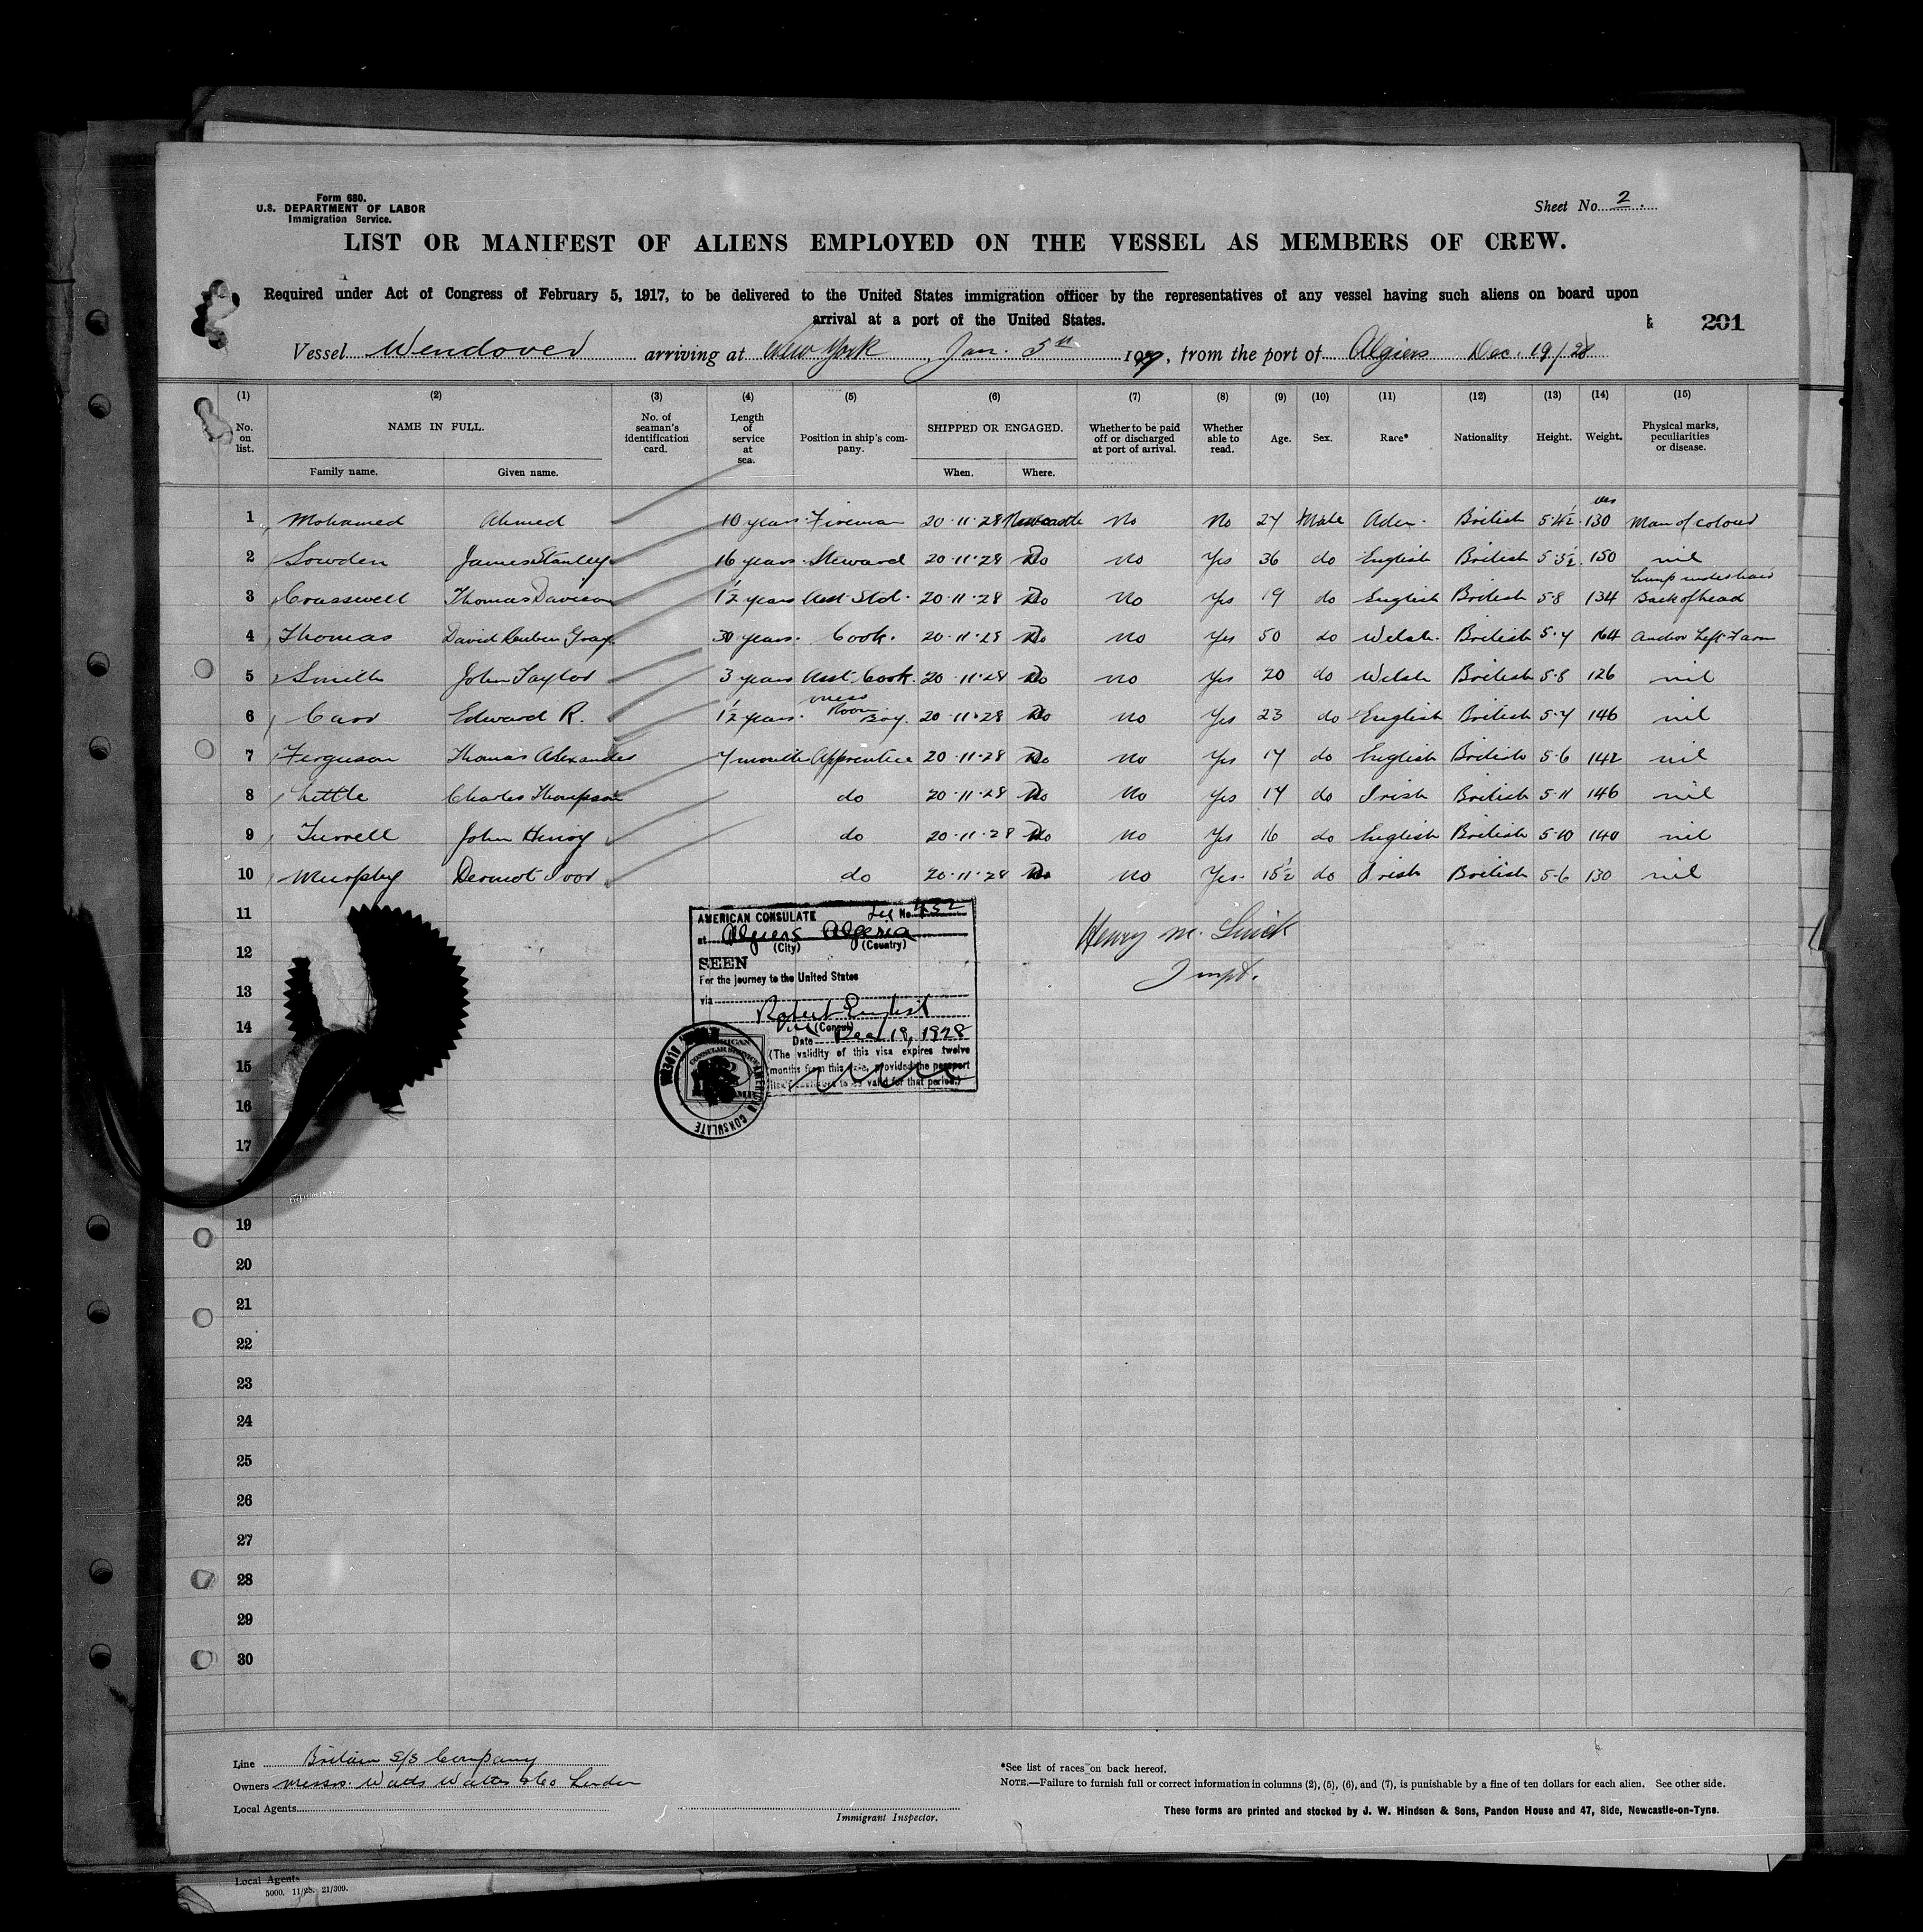 Form 680.
U.S. DEPARTMENT OF LABOR
Immigration Service.
Sheet No. 2.
LIST OR MANIFEST OF ALIENS EMPLOYED ON THE VESSEL AS MEMBERS OF CREW.
Required under Act of Congress of February 5, 1917, to be delivered to the United States immigration officer by the representatives of any vessel having such aliens on board upon
arrival at a port of the United States.
201
Vessel Wendover arriving at New York, Jan. 5th 1929, from the port of Algiers Dec. 19/28
(1) (2) (3) (4) (5) (6) (7) (8) (9) (10) (11) (12) (13) (14) (15)
No. on list. NAME IN FULL. No. of seaman's identification card. Length of service at sea. Position in ship's company. SHIPPED OR ENGAGED. Whether to be paid off or discharged at port of arrival. Whether able to read. Age. Sex. Race* Nationality Height. Weight. Physical marks, peculiarities or disease.
Family name. Given name. When. Where.
1 Mohamed Ahmed 10 years Fireman 20.11.28 Newcastle No No 27 Male Aden British 5.4½ 130 Man of colour
2 Sowden James Stanley 16 years Steward 20.11.28 Do No Yes 36 do English British 5.5½ 150 nil
3 Crasswell Thomas Davison 1½ years Asst Std. 20.11.28 Do No Yes 19 do English British 5.8 134 Lump under hair Back of head
4 Thomas David Reuben Gray 30 years. Cook. 20.11.28 Do No Yes 50 do Welsh. British 5.7 164 Anchor Left F arm
5 Smith John Taylor 3 years Asst. Cook. 20.11.28 Do No Yes 20 do Welsh British 5.8 126 nil
6 Carr Edward R. 1½ years. Mess Room Boy. 20.11.28 Do No Yes 23 do English British 5.7 146 nil
7 Ferguson Thomas Alexander 7 months Apprentice 20.11.28 Do No Yes 17 do English British 5.6 142 nil
8 Little Charles Thompson do 20.11.28 Do No Yes 17 do Irish British 5.11 146 nil
9 Turrell John Henry do 20.11.28 Do No Yes 16 do English British 5.10 140 nil
10 Murphy Dermot Ivor do 20.11.28 Do No Yes. 15½ do Irish British 5.6 130 nil
11
12
13
14
15
16
17
19
20
21
22
23
24
25
26
27
28
29
30
AMERICAN CONSULATE No. 432
at Algiers Algeria
(City) (Country)
SEEN
For the journey to the United States
via
Robert English
Vice (Consul)
Date Dec 18, 1928
(The validity of this visa expires twelve
months from this date, provided the passport
continues to be valid for that period.)
AMERICAN CONSULATE
Henry M.
Inspt.
Line Britain S/S Company
Owners Messrs. Watts Watts & Co London
Local Agents
Immigrant Inspector.
*See list of races on back hereof.
NOTE.—Failure to furnish full or correct information in columns (2), (5), (6), and (7), is punishable by a fine of ten dollars for each alien. See other side.
These forms are printed and stocked by J. W. Hindson & Sons, Pandon House and 47, Side, Newcastle-on-Tyne.
Local Agents
5000. 11/28. 21/309.